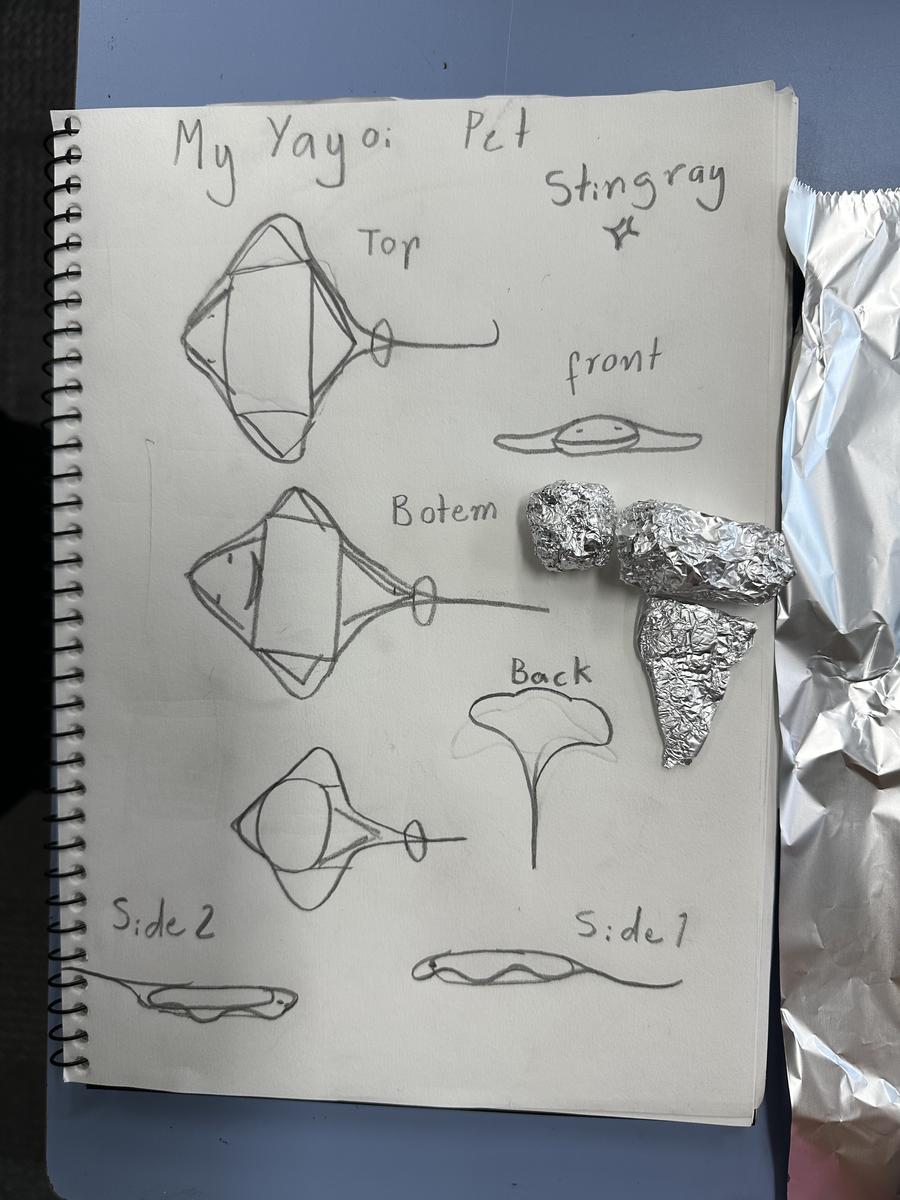 My Yayoi Pet
Stingray
Top
front
Botem
Back
Side 2
Side 1